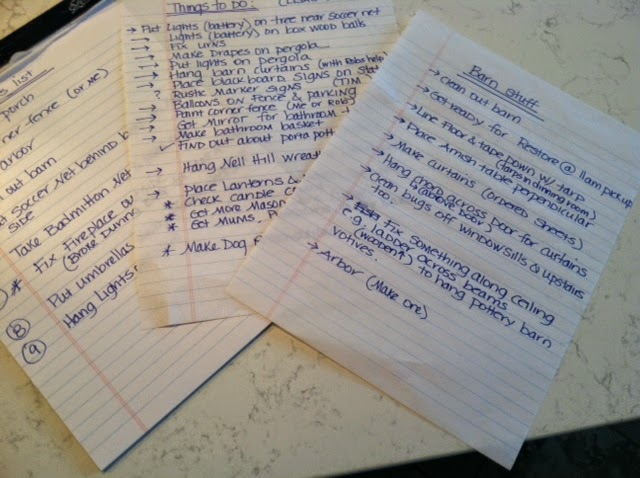 s list
porch
fence (or me)
arbor
out barn
soccer net behind b
size
Take Badmitton Net
* Fix Fireplace
Put umbrellas
(8)
Hang Lights
(9)
Things to do:
→ Put Lights (battery) on tree near soccer net
→ Lights (battery) on box wood balls
→ Fix urns
→ Make Drapes on pergola
→ Put lights on pergola
→ Hang barn curtains (with Robs help)
→ Place blackboard signs on
? Rustic Marker signs (Tim
→ Balloons on Fence & parking
→ Paint corner fence (me or Rob)
→ Get Mirror for bathroom
→ Make bathroom basket
✓ Find out about porta pott
→ Hang Nell Hill wreat
→ place Lanterns &
* check candle
* Get More Mason
* Get Mums,
* Make Dog
Barn stuff
→ Clean out barn
→ Get ready for Restore @ 11am pick up
→ Line Floor & tape down w/ tarp
(tarps in dining room)
→ Place Amish Table perpendicular
→ Make curtains (ordered sheets)
→ Hang from across Door for curtains
(above door)
→ clean bugs off windowsills & upstairs
too.
→ Fix something along ceiling
e.g. ladder across beams
(wooden) to hang pottery barn
votives.
→ Arbor (Make one)